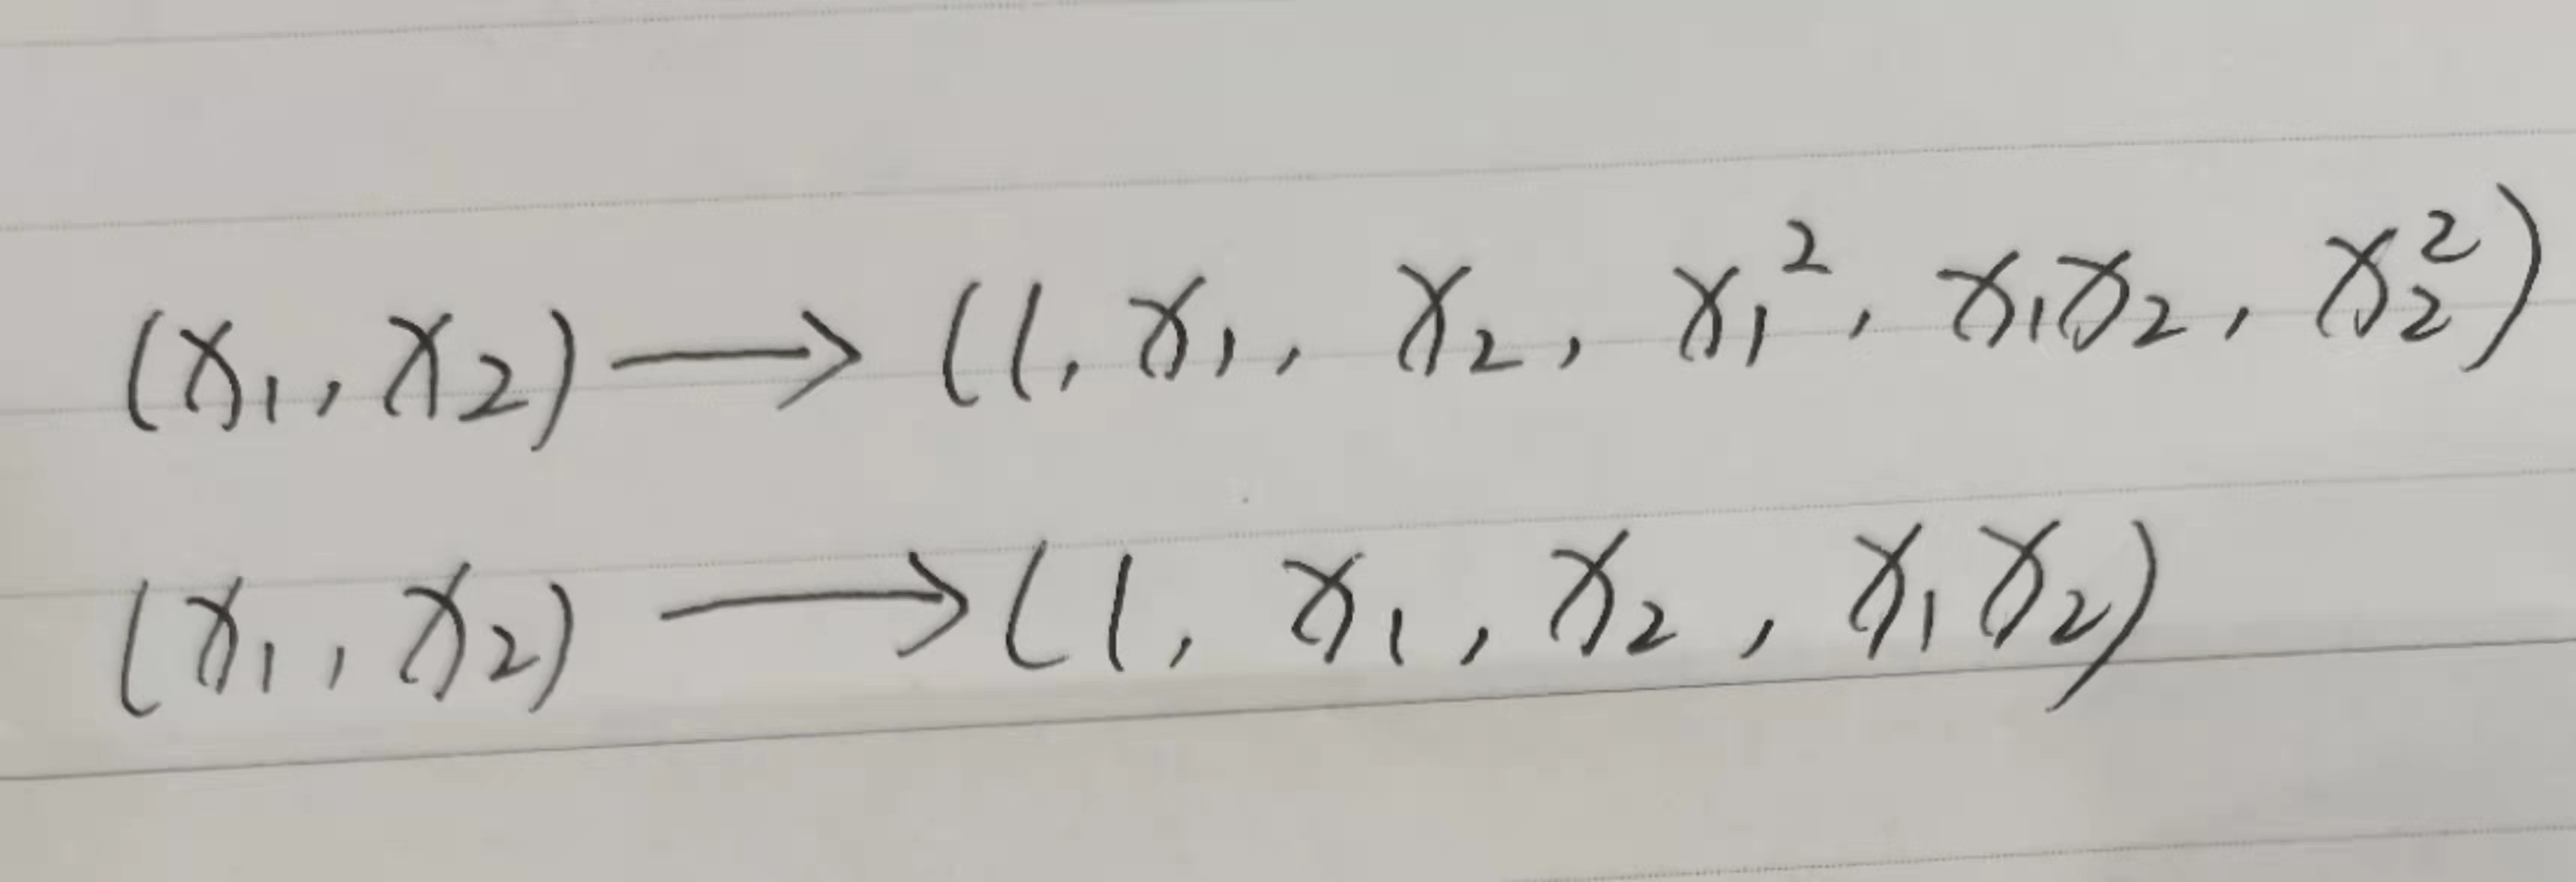 (x₁, x₂) → (1, x₁, x₂, x₁², x₁x₂, x₂²)
(x₁, x₂) → (1, x₁, x₂, x₁x₂)